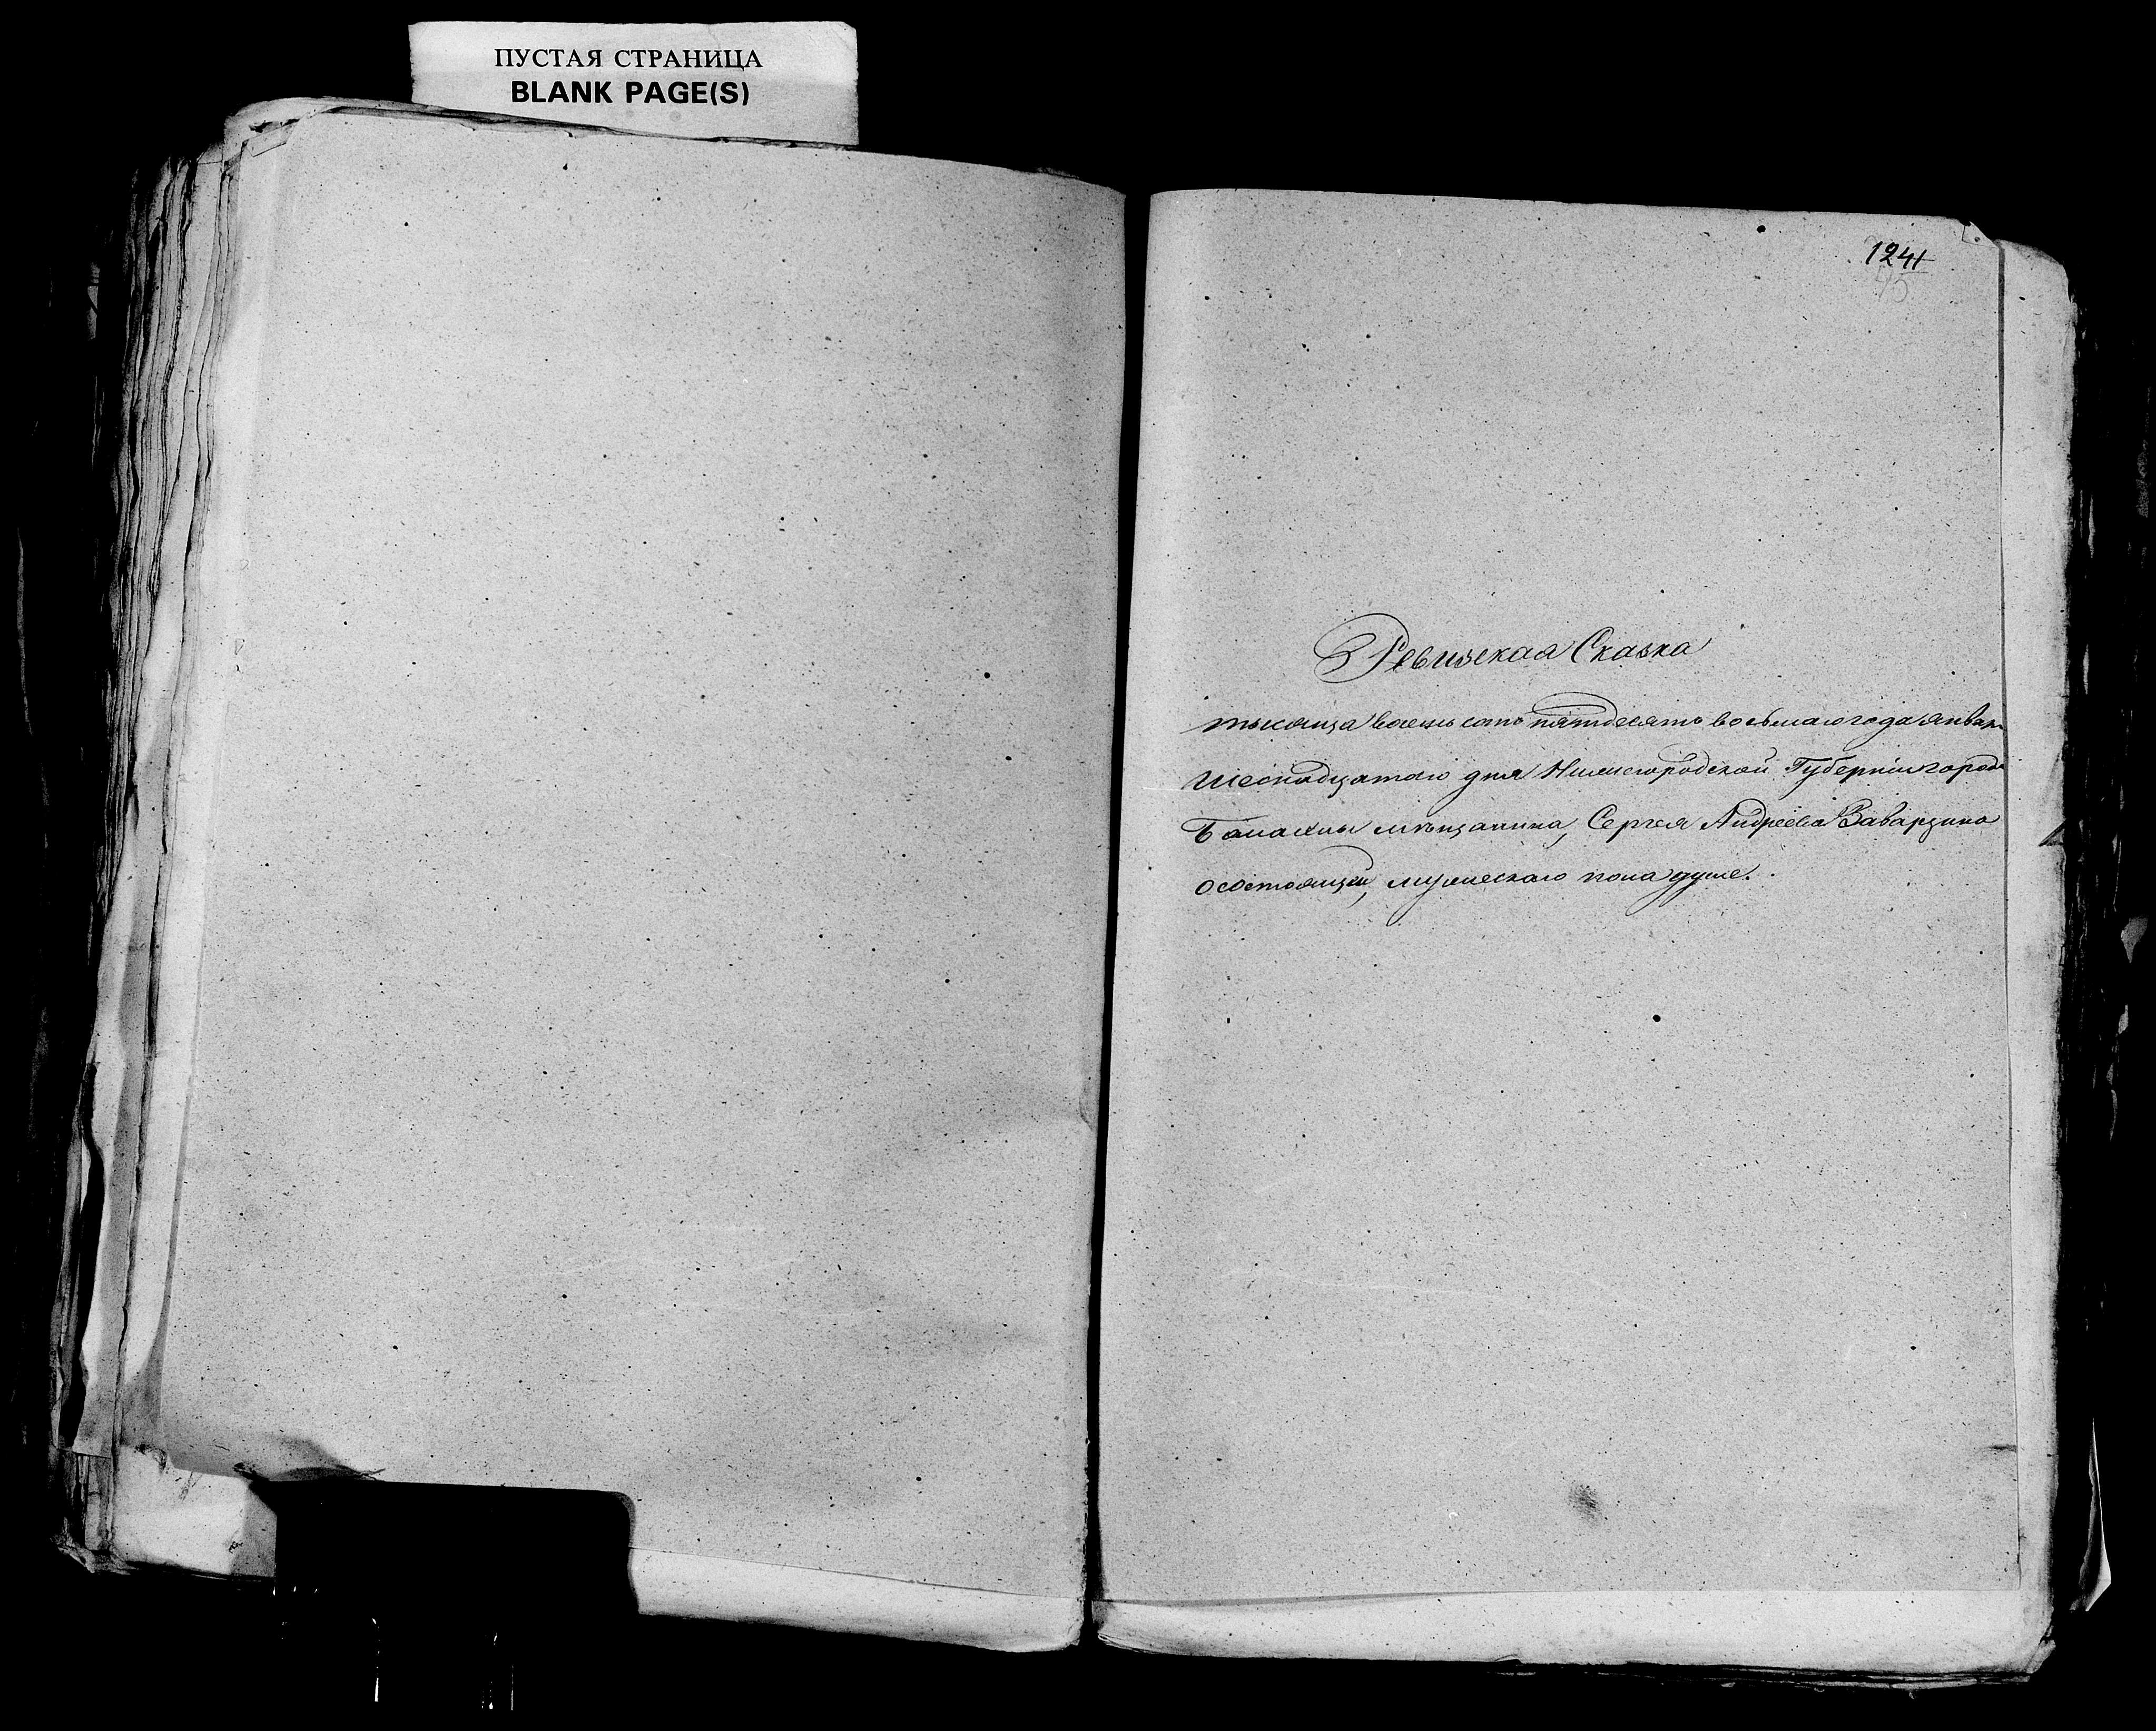 ПУСТАЯ СТРАНИЦА
BLANK PAGE(S)
1241
Ревизская Сказка
тысяща восемь сотъ пятьдесятъ восьмаго года января
шеснадцатаго дня Нижегородской Губерніи города
Балахны мѣщанина, Сергея Андреева Заварзина
о состоящей, мужескаго пола душе.